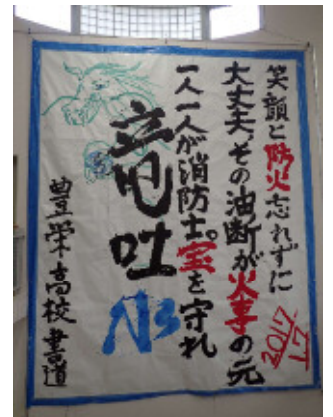 笑顔と防火忘れずに
大丈夫、その油断が火事の元
一人一人が消防士。宝を守れ
竜吐
豊栄高校書道